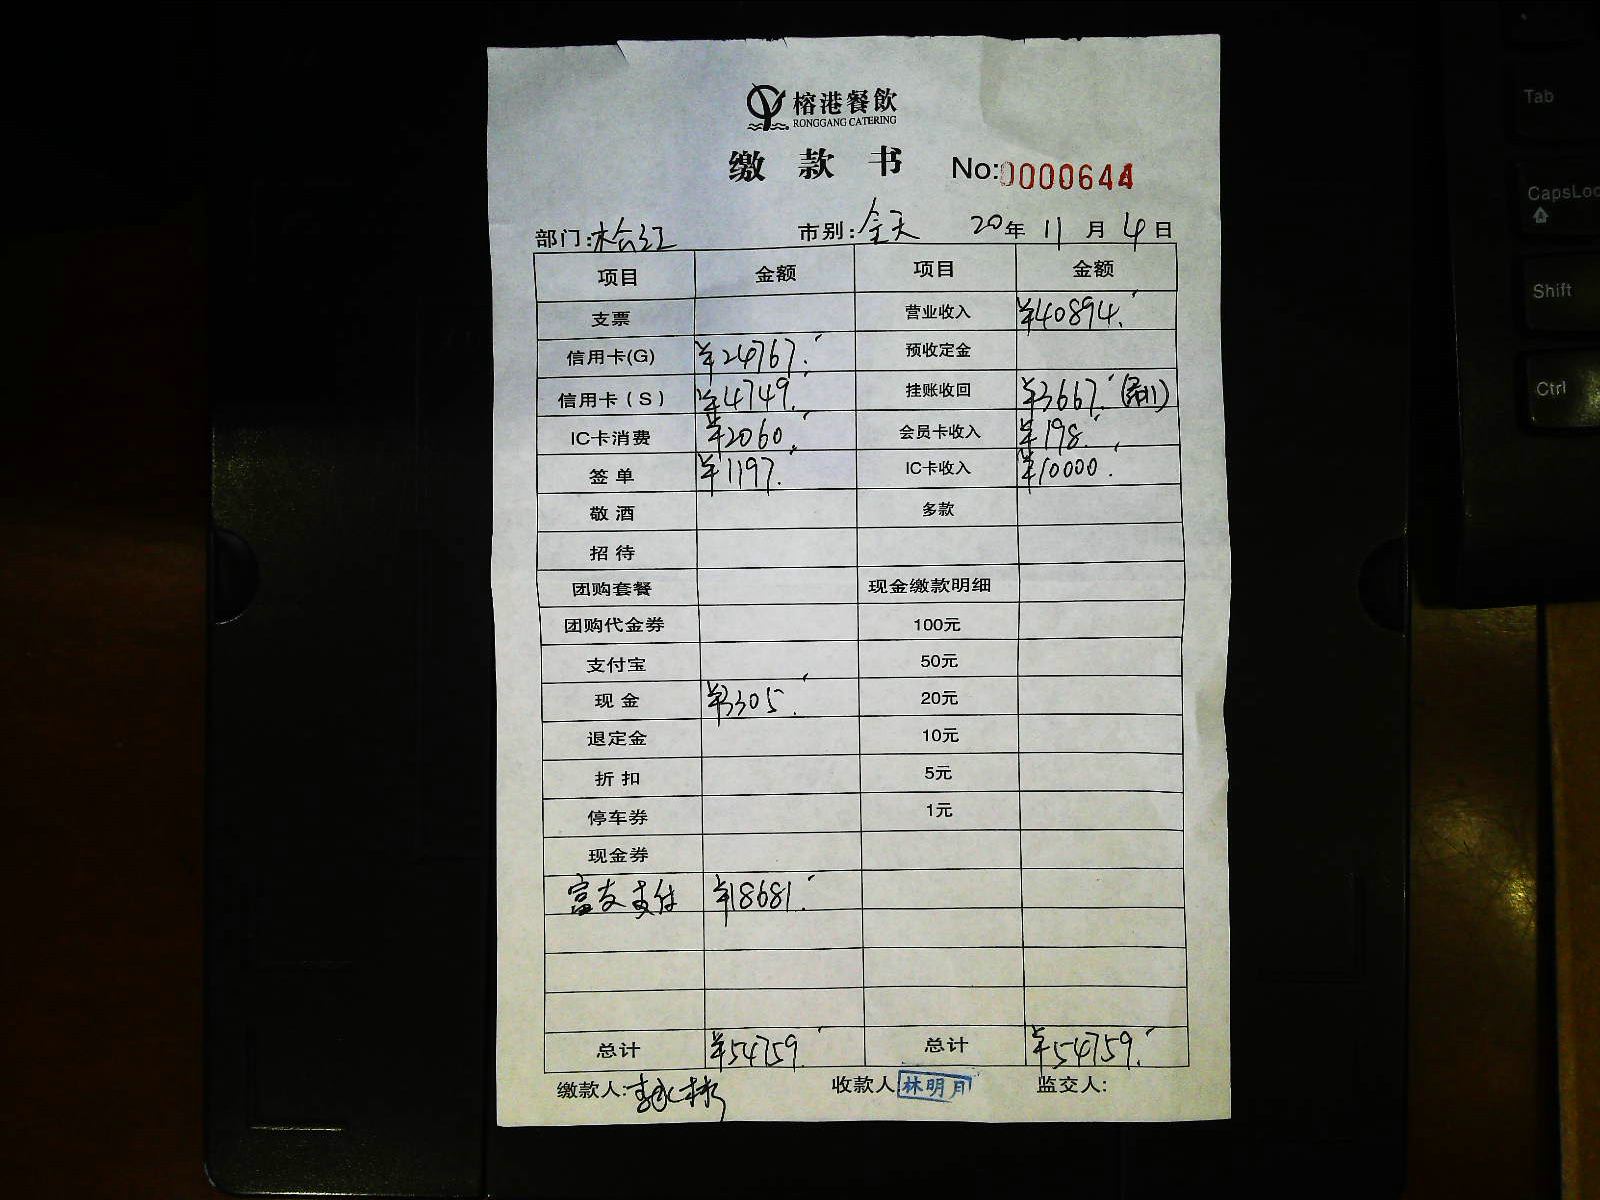 榕港餐飲
RONGGANG CATERING
缴 款 书 No:0000644
部门: 市别:全天 20年 11月 4日
项目 金额 项目 金额
支票 营业收入 ¥40894.
信用卡(G) ¥24767. 预收定金
信用卡(S) ¥4749. 挂账收回 ¥3667.
IC卡消费 ¥2060. 会员卡收入 ¥198.
签 单 ¥1197. IC卡收入 ¥10000.
敬 酒 多款
招 待
团购套餐 现金缴款明细
团购代金券 100元
支付宝 50元
现 金 ¥3305. 20元
退定金 10元
折 扣 5元
停车券 1元
现金券
富友支付 ¥18681.
总计 ¥54759. 总计 ¥54759.
缴款人: 收款人 林明月 监交人:
Tab
CapsLoc
Shift
Ctrl